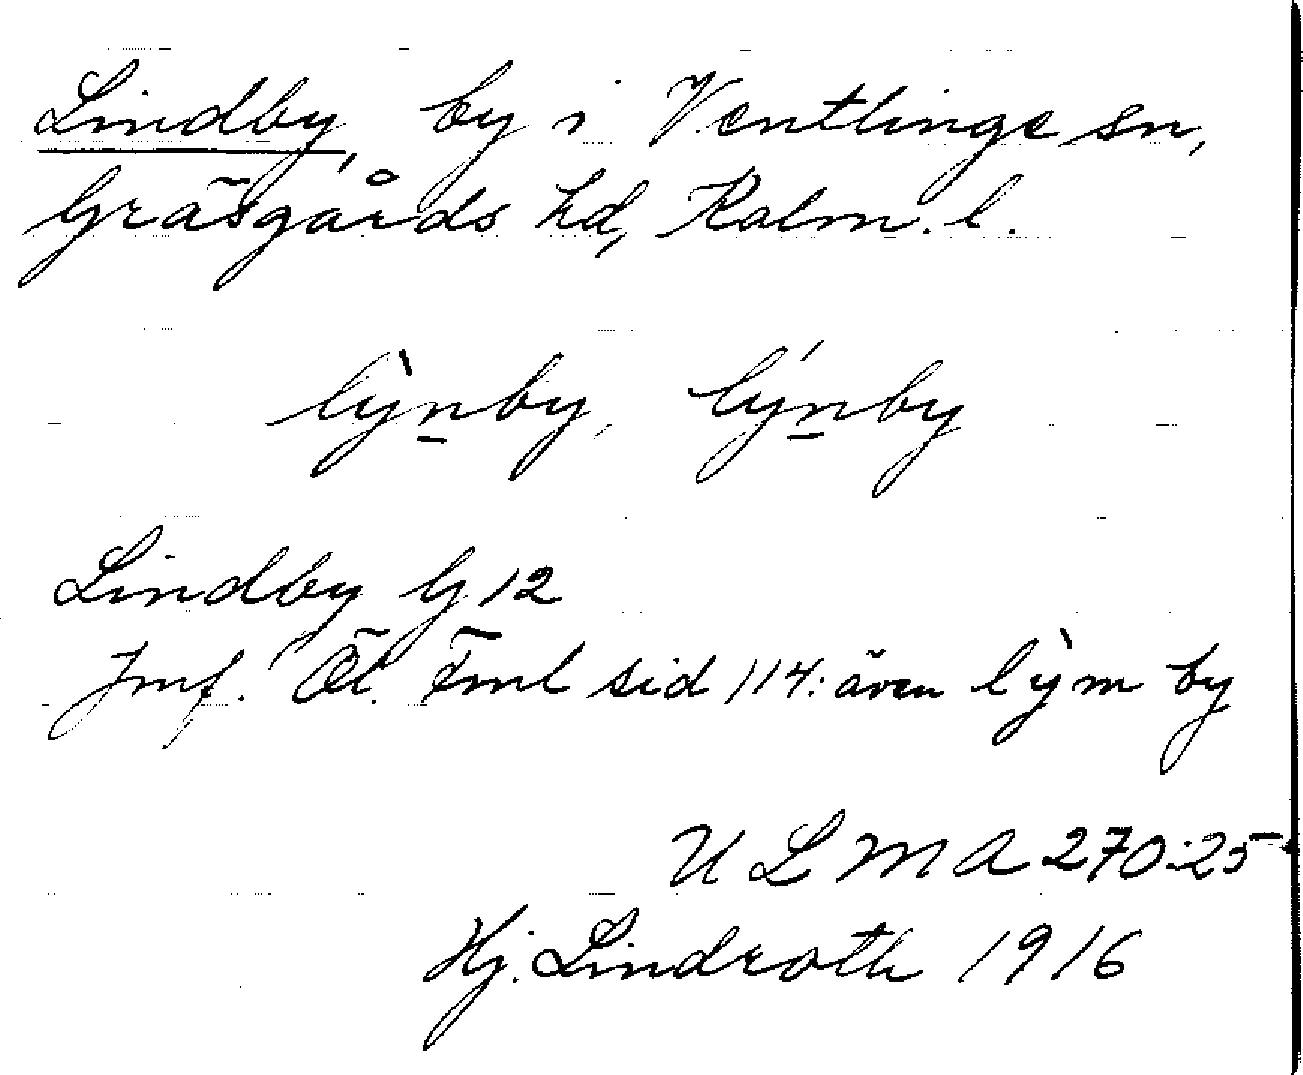 Lindby, by i Ventlinge sn,
Gräsgårds hd, Kalm. l.
lỳn̲by, lýn̲by
Lindby G 12
Jmf. Öl. Fml sid 114: även lỳm by
ULMA 270:25
Hj. Lindroth 1916